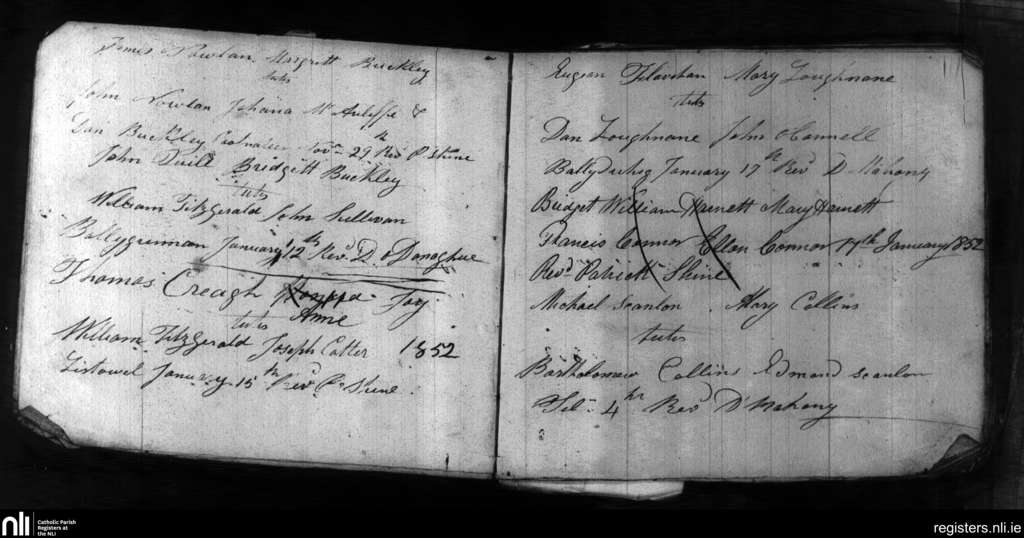 James Nowlan Margrett Buckley
tests
John Nowlan Johana McAuliffe &
Dan Buckley Novr 29th Revd P Shine
John Quill Bridgett Buckley
tests
William Fitzgerald John Sullivan
Ballygrennan January 12th Revd D. ODonoghue
Thomas Creagh Joy
Anne
tests
William Fitzgerald Joseph Catter 1852
Listowel January 15th Revd P. Shine
Eugean Mary Loughnane
tests
Dan Loughnane John OConnell
January 17th Revd D Mahony
Bridget William Harnett Mary Harnett
Francis Connor Ellen Connor 17th January 1852
Revd Patrick Shine
Michael Scanlon Mary Collins
tests
Bartholomew Collins Edmond Scanlon
Feb 4th Revd D Mahony
nli
Catholic Parish
Registers at
the NLI
registers.nli.ie